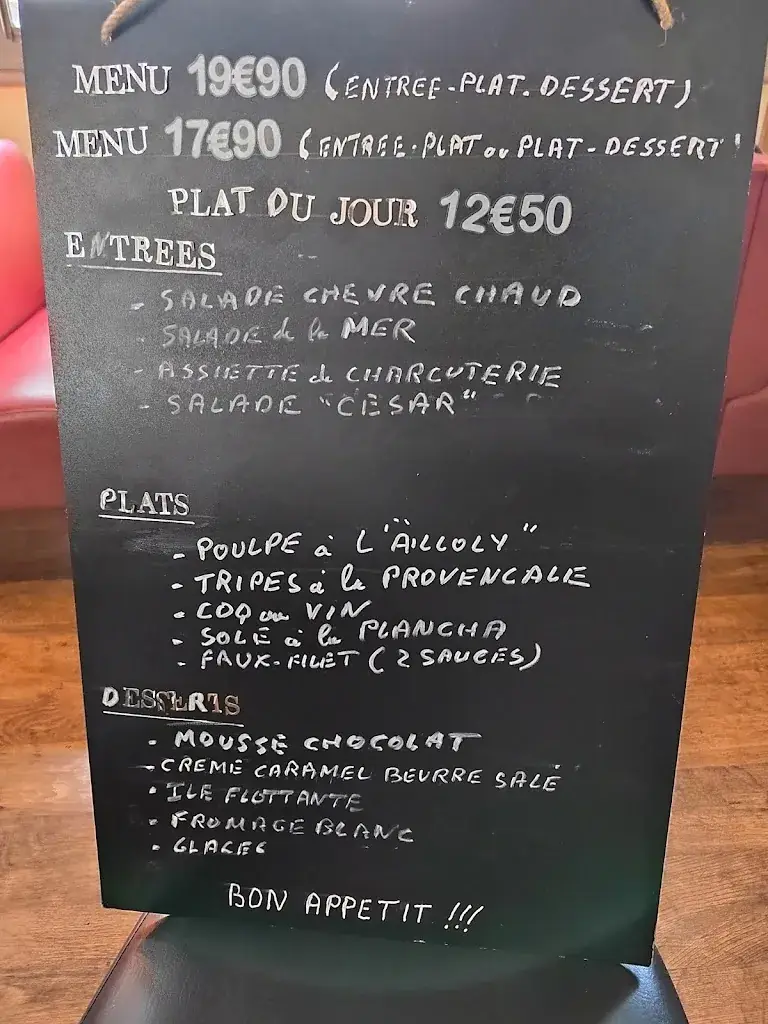 MENU 19€90 (ENTREE-PLAT. DESSERT)
MENU 17€90 (ENTREE-PLAT ou PLAT-DESSERT)
PLAT DU JOUR 12€50
ENTREES
- SALADE CHEVRE CHAUD
- SALADE de la MER
- ASSIETTE de CHARCUTERIE
- SALADE "CESAR"
PLATS
- POULPE à L'"AILLOLY"
- TRIPES à la PROVENCALE
- COQ au VIN
- SOLE à la PLANCHA
- FAUX-FILET (2 SAUCES)
DESSERTS
- MOUSSE CHOCOLAT
- CREME CARAMEL BEURRE SALÉ
- ILE FLOTTANTE
- FROMAGE BLANC
- GLACES
BON APPETIT !!!